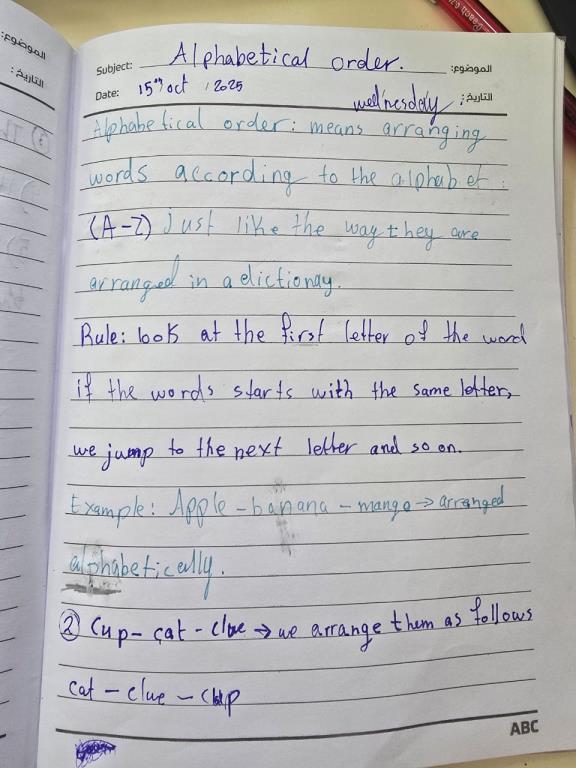 Subject: Alphabetical order. الموضوع:
Date: 15th oct : 2025 wednesday التاريخ:
Alphabetical order: means arranging
words according to the alphabet :
(A-Z) just like the way they are
arranged in a dictionay.
Rule: look at the first letter of the word
if the words starts with the same letter,
we jump to the next letter and so on.
Example: Apple - banana - mango → arranged
alphabetically.
② Cup - cat - clue → we arrange them as follows
cat - clue - cup
ABC
الموضوع:
التاريخ: